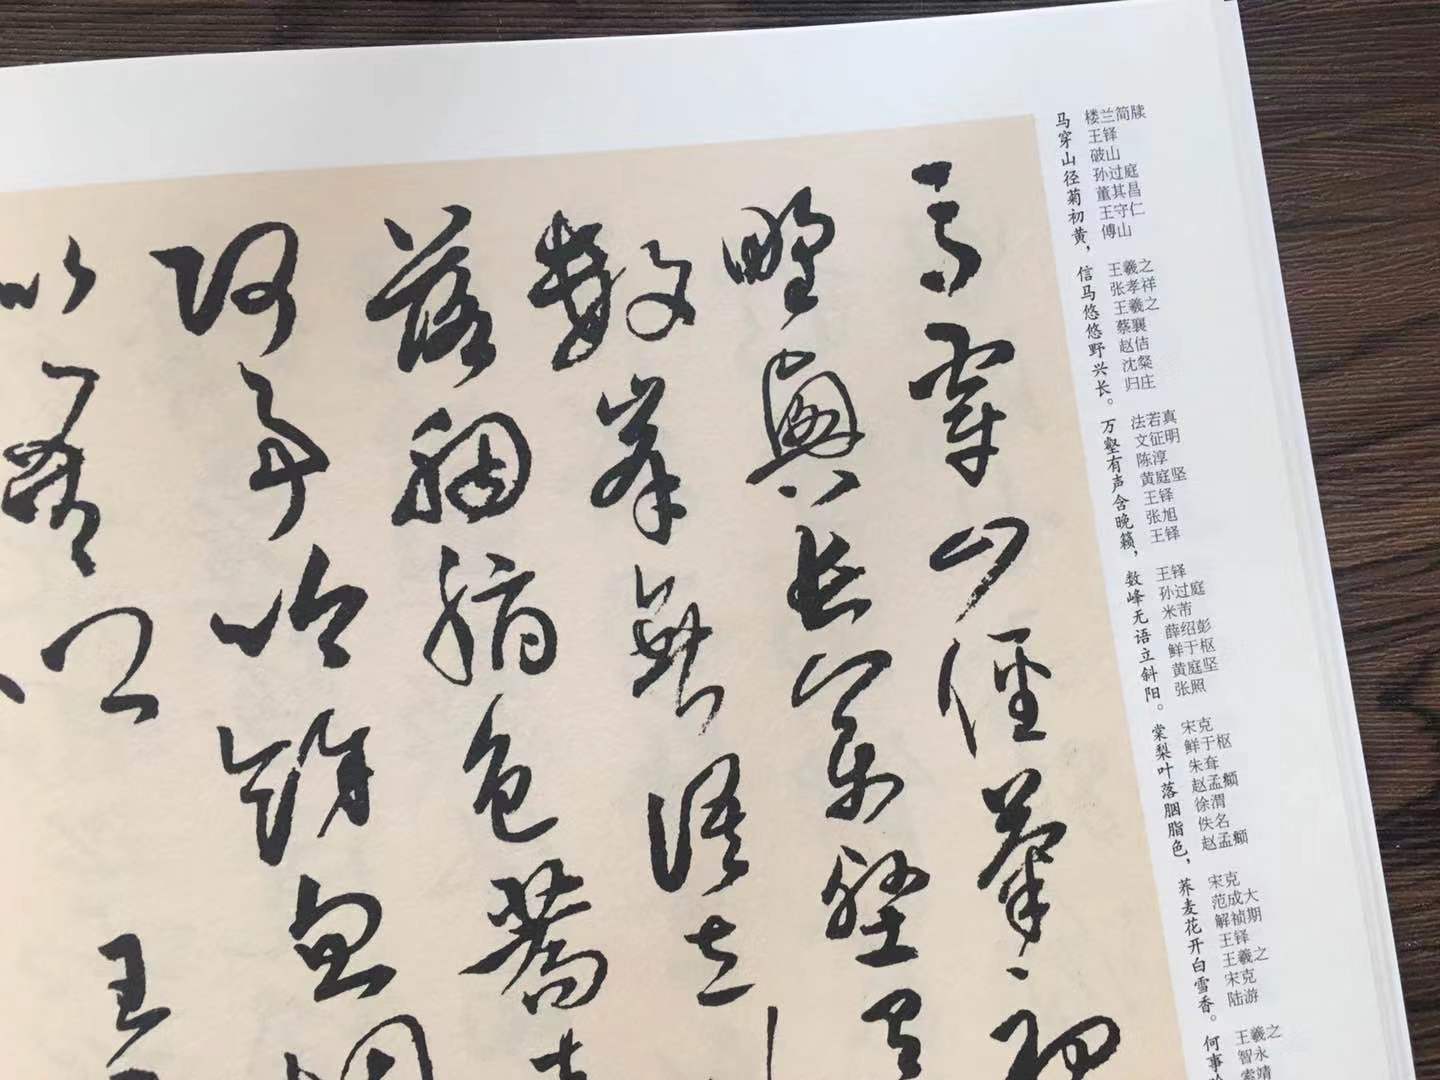 楼兰简牍
王铎
破山
孙过庭
董其昌
王守仁
傅山
王羲之
张孝祥
王羲之
蔡襄
赵佶
沈粲
归庄
法若真
文征明
陈淳
黄庭坚
王铎
张旭
王铎
王铎
孙过庭
米芾
薛绍彭
鲜于枢
黄庭坚
张照
宋克
鲜于枢
朱耷
赵孟頫
徐渭
佚名
赵孟頫
宋克
范成大
解祯期
王铎
王羲之
宋克
陆游
王羲之
智永
索靖
马穿山径菊初黄，信马悠悠野兴长。万壑有声含晚籁，数峰无语立斜阳。棠梨叶落胭脂色，荞麦花开白雪香。何事
馬穿山徑菊初
野興長萬壑有
數峯無語立
落胭脂色蕎麥
何事吟餘忽惆
似吾鄉
王